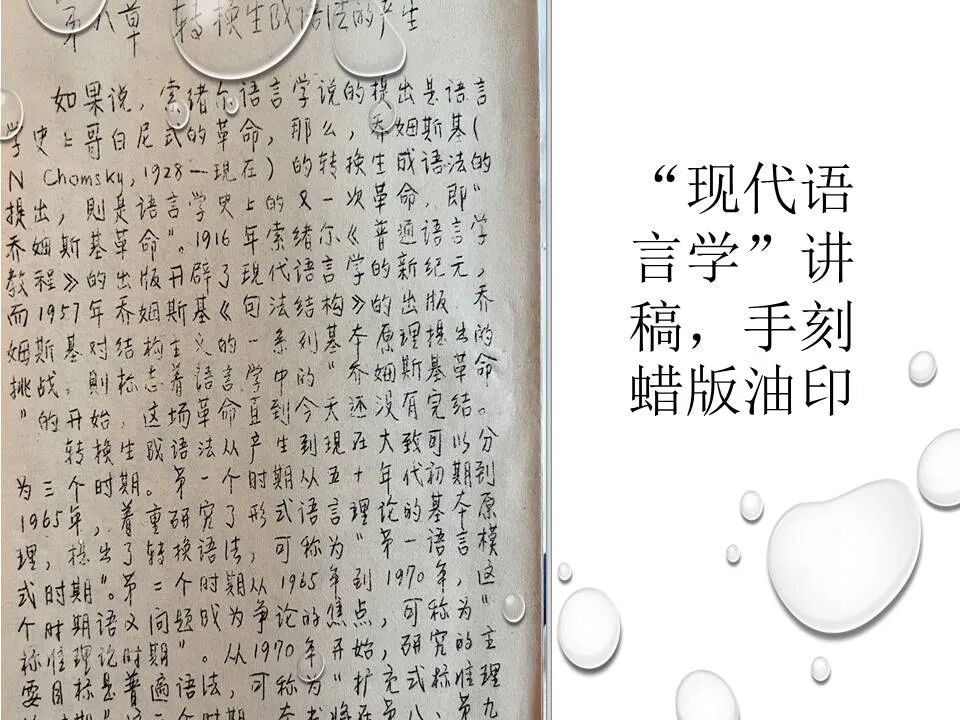 第八章 转换生成语法的产生
如果说，索绪尔语言学说的提出是语言
学史上哥白尼式的革命，那么，乔姆斯基（
N Chomsky，1928—现在）的转换生成语法的
提出，则是语言学史上的又一次革命，即“
乔姆斯基革命”。1916年索绪尔《普通语言学
教程》的出版开辟了现代语言学的新纪元，
而1957年乔姆斯基《句法结构》的出版，乔
姆斯基对结构主义的一系列基本原理提出的
挑战，则标志着语言学中的“乔姆斯基革命
”的开始，这场革命直到今天还没有完结。
转换生成语法从产生到现在大致可以分
为三个时期。第一个时期从五十年代初期到
1965年，着重研究了形式语言理论的基本原
理，提出了转换语法，可称为“第一语言模
式时期”。第二个时期从1965年到1970年，这
个时期语义问题成为争论的焦点，可称为“
标准理论时期”。从1970年开始，研究的主
要目标是普遍语法，可称为“扩充式标准理
“现代语
言学”讲
稿，手刻
蜡版油印